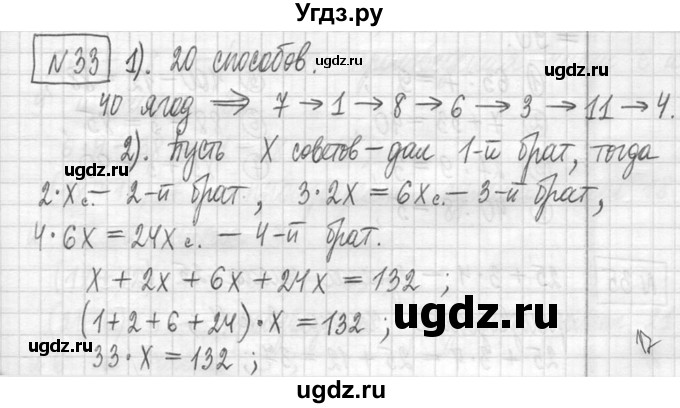 Угдз.ру
№33 1). 20 способов.
40 ягод ⟹ 7 → 1 → 8 → 6 → 3 → 11 → 4.
2). Пусть X советов – дал 1-й брат, тогда
2·Xс. – 2-й брат, 3·2X = 6Xс. – 3-й брат,
4·6X = 24Xс. – 4-й брат.
X + 2X + 6X + 24X = 132 ;
(1+2+6+24)·X = 132 ;
33·X = 132 ;
17
ugdz.ru
ugdz.ru
ugdz.ru
ugdz.ru
ugdz.ru
ugdz.ru
ugdz.ru
ugdz.ru